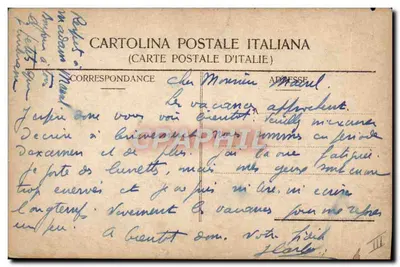 CARTOLINA POSTALE ITALIANA
(CARTE POSTALE D'ITALIE)
CORRESPONDANCE ADRESSE
cher Monsieur Maurel
Les vacances approchent.
J'espère donc vous voir bientôt. Veuillez m'excuser
d'écrire si brièvement, nous sommes en période
d'examens et de plus, j'ai la vue fatiguée.
Je porte des lunettes, mais mes yeux sont encore
trop énervés et je ne puis ni lire, ni écrire
longtemps. Vivement les vacances pour me reposer
un peu. A bientôt donc. Votre
Respect à
madame Maurel
III